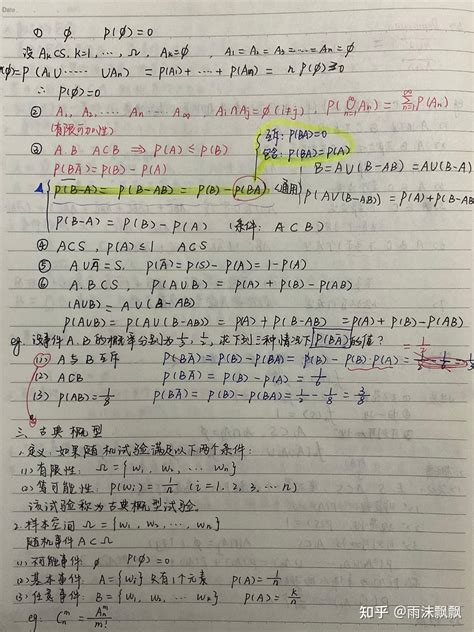 Date
① ∅ P(∅)=0
设 Aₖ⊂S, k=1, ..., n, Aₖ=∅ A₁=A₂=A₃=...=Aₙ=∅
P(∅)=P(A₁∪...∪Aₙ) = P(A₁)+...+P(Aₘ) = nP(∅)≥0
∴ P(∅)=0
② A₁, A₂, ... Aₙ ... A∞, Aᵢ∩Aⱼ=∅(i≠j) P(⋃ₙ₌₁^∞Aₙ)=∑ₙ₌₁^∞P(Aₙ)
(有限可加性)
P(BA)=0
③ A.B. A⊂B ⇒ P(A)≤P(B) P(BA)=P(A)
P(BĀ)=P(B)-P(A) B=A∪(B-AB)=A∪(B-A)
P(B-A)=P(B-AB)=P(B)-P(BA) (通用) P(A∪(B-AB))=P(A)+P(B-AB)
P(B-A)=P(B)-P(A) (条件: A⊂B)
④ A⊂S, P(A)≤1 A⊂S
⑤ A∪Ā=S. P(Ā)=P(S)-P(A)=1-P(A)
⑥ A.B⊂S, P(A∪B)=P(A)+P(B)-P(AB)
(A∪B)=A∪(B-AB)
P(A∪B)=P(A∪(B-AB))=P(A)+P(B-AB)=P(A)+P(B)-P(AB)
eg. 设事件A.B的概率分别为 求下列三种情况下P(BĀ)的值?
(1) A与B互斥 P(BĀ)=P(B)-P(BA)=P(B)-P(B)·P(A)=
(2) A⊂B P(BĀ)=P(B)-P(A)=1/6
(3) P(AB)=1/8 P(BĀ)=P(B)-P(BA)=1/2-1/8=3/8
三. 古典概型
1.定义: 如果随机试验满足以下两个条件:
(1)有限性: Ω={w₁, w₂, ... wₙ}
(2)等可能性: P(wᵢ)=1/n (i=1, 2, 3, ... n)
该试验称为古典概型试验.
2.样本空间Ω={w₁, w₂, ... wₙ}
随机事件A⊂Ω
(1)不可能事件 ∅ P(∅)=0
(2)基本事件: A={wᵢ} 只有1个元素 P(A)=1/n
(3)任意事件: B={w₁, w₂, ... wₖ} P(A)=k/n
eg. Cₙᵐ=Aₙᵐ/m!
知乎 @雨沫飘飘